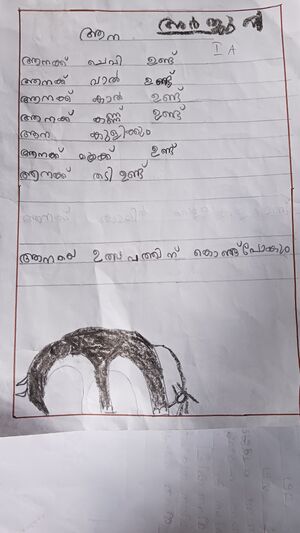 ആന
അർജുൻ
I A
ആനക്ക് ചെവി ഉണ്ട്
ആനക്ക് വാൽ ഉണ്ട്
ആനക്ക് കാൽ ഉണ്ട്
ആനക്ക് കണ്ണ് ഉണ്ട്
ആന കുളിക്കും
ആനക്ക് ഉണ്ട്
ആനക്ക് തടി ഉണ്ട്
ആനയെ ഉത്സപത്തിന് കൊണ്ട്പോകും